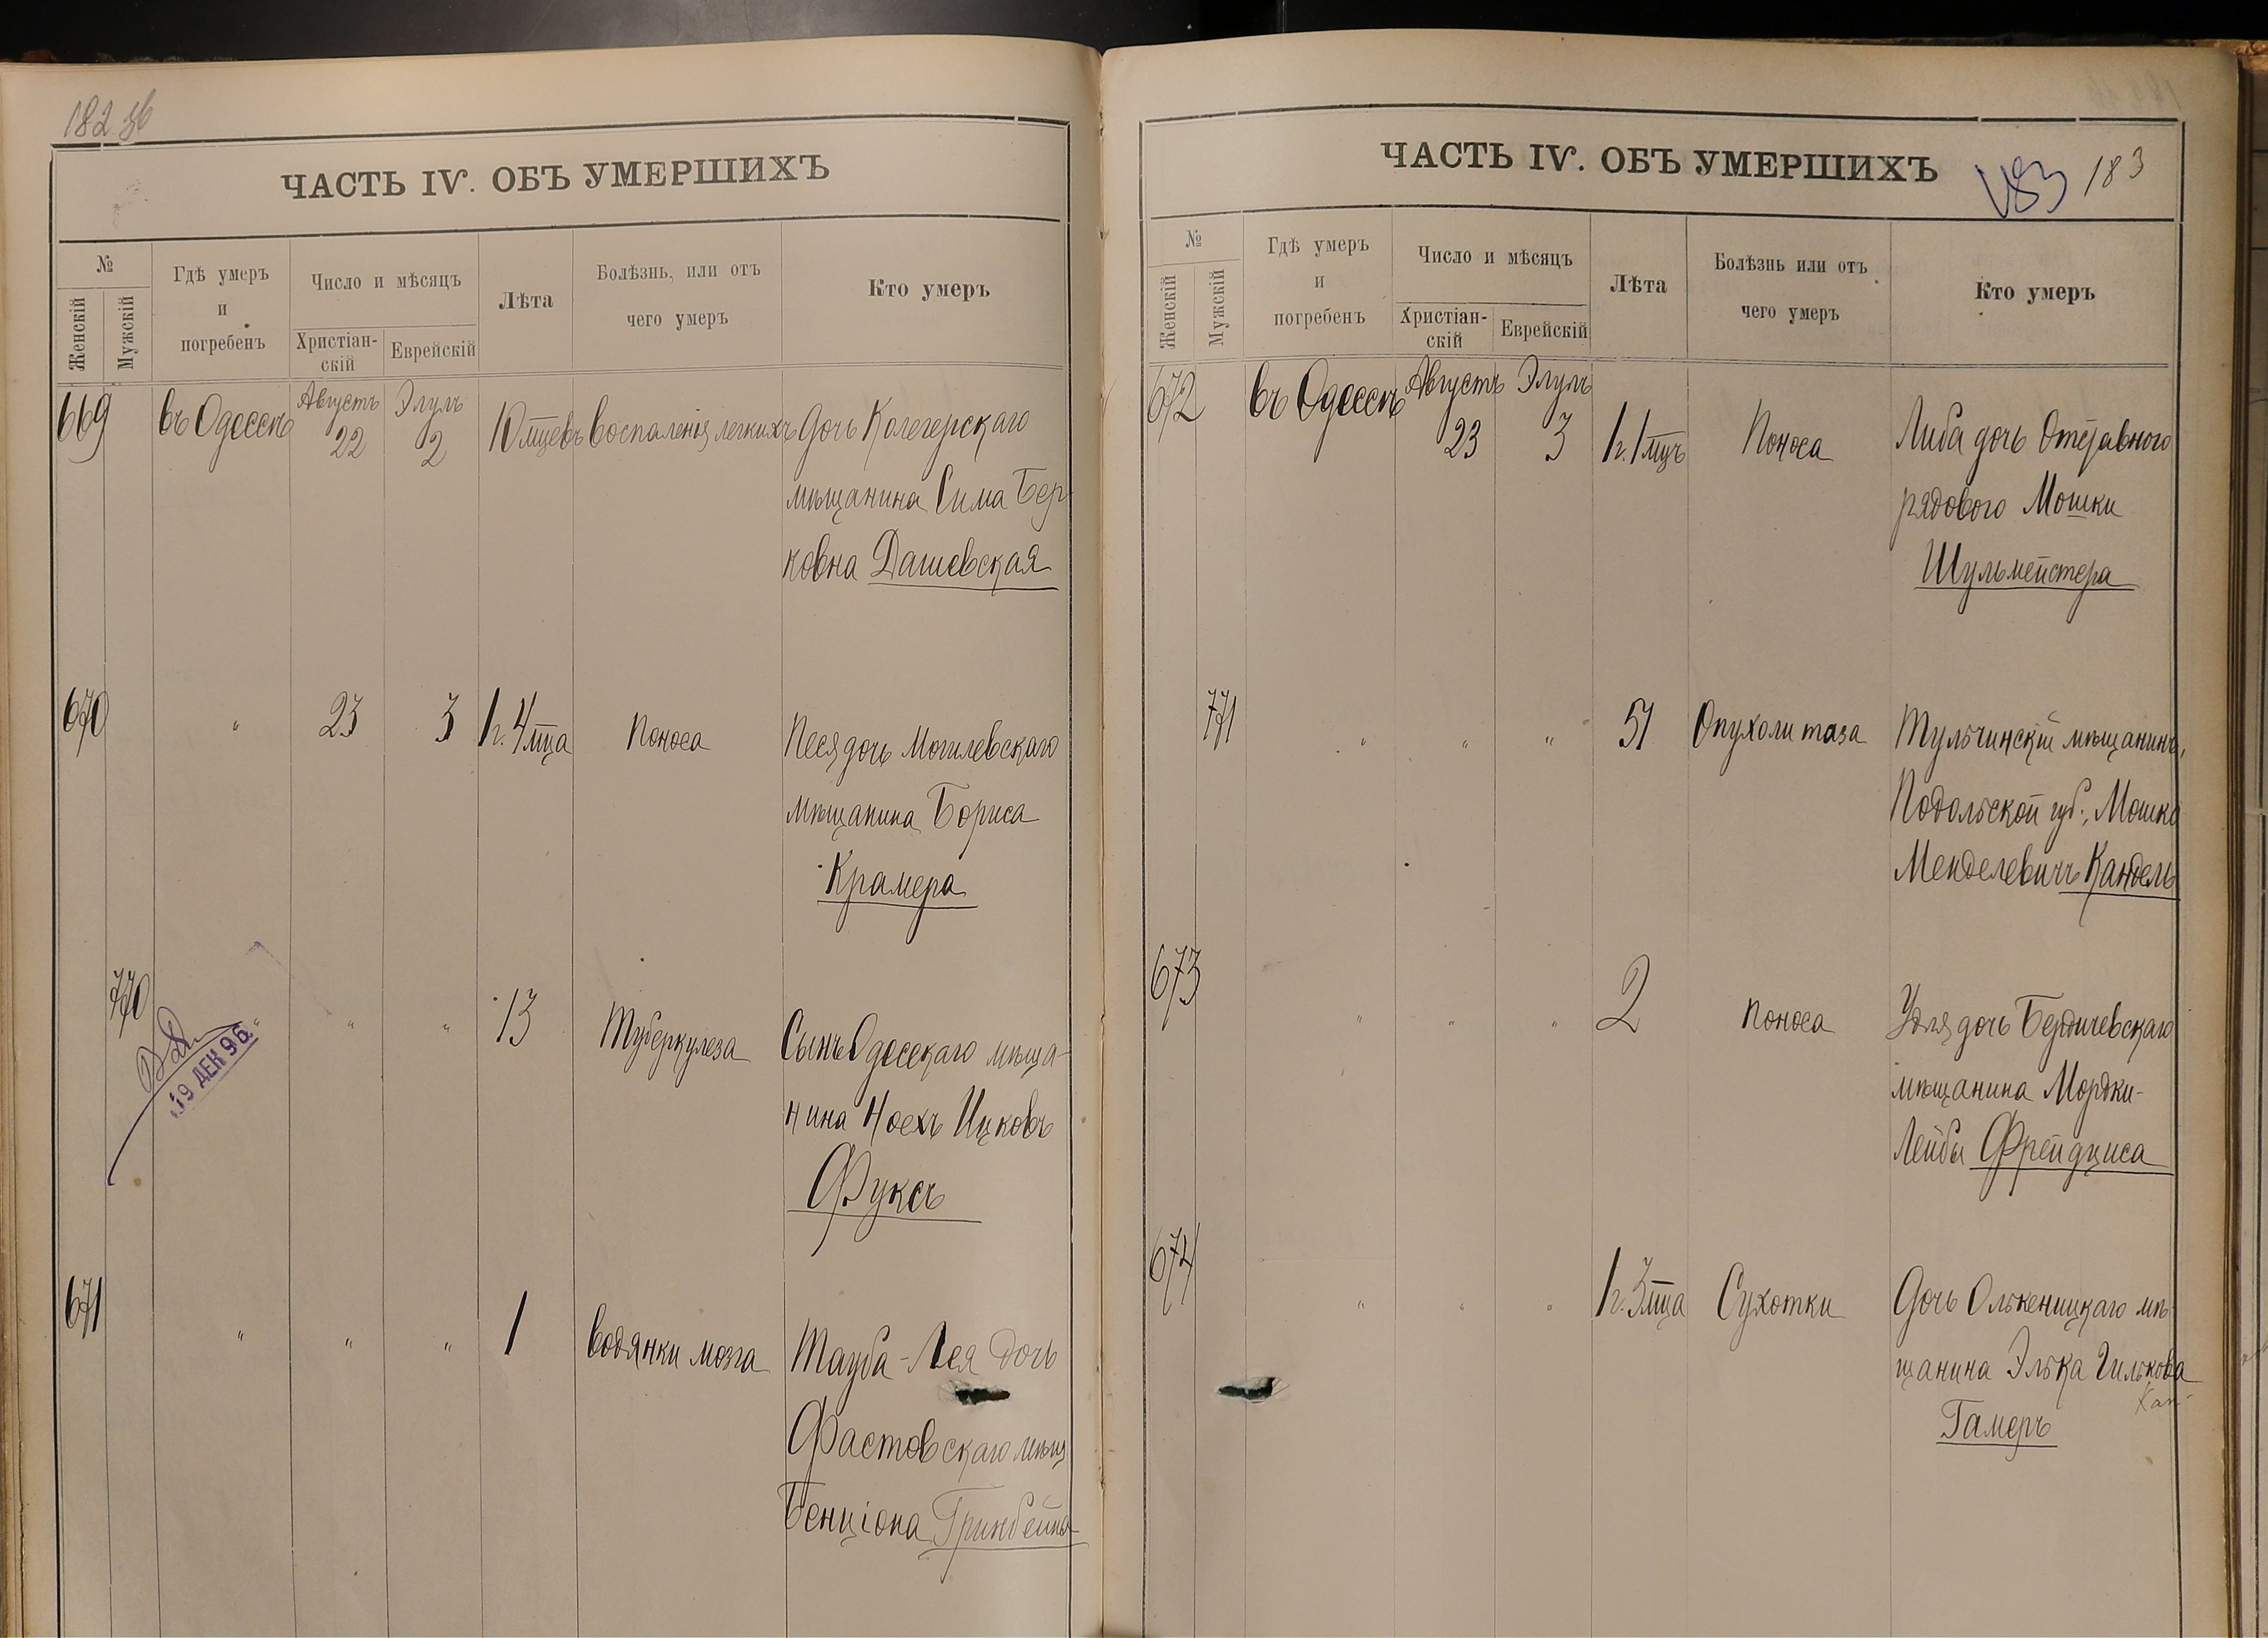 182 об
ЧАСТЬ IV. ОБЪ УМЕРШИХЪ
№
Женскій
Мужскій
Гдѣ умеръ
и
погребенъ
Число и мѣсяцъ
Христіан-
скій
Еврейскій
Лѣта
Болѣзнь, или отъ
чего умеръ
Кто умеръ
669 въ Одессѣ Августъ 22 Элулъ 2 10 мцевъ воспаленія легкихъ Дочь Колегерскаго
мѣщанина Сима Бер
ковна Дашевская
670 " 23 3 1 г. 4 мца Поноса Песя дочь Могилевскаго
мѣщанина Бориса
Крамера
770 " " " 13 Туберкулеза Сынъ Одесскаго мѣща-
нина Ноехъ Ицковъ
Фуксъ
19 ДЕК 96
671 " " " 1 водянки мозга Тауба-Лея дочь
Фастовскаго мѣщ
Бенціона
183 183
ЧАСТЬ IV. ОБЪ УМЕРШИХЪ
№
Женскій
Мужскій
Гдѣ умеръ
и
погребенъ
Число и мѣсяцъ
Христіан-
скій
Еврейскій
Лѣта
Болѣзнь или отъ
чего умеръ
Кто умеръ
672 въ Одессѣ Августъ 23 Элулъ 3 1 г. 1 мцъ Поноса Либа дочь
рядового Мошки
Шульмейстера
771 " " " 51 Опухоли таза Тульчинскій мѣщанинъ,
Подольской губ., Мошка
Менделевичъ Кандель
673 " " " 2 Поноса Удля дочь Бердичевскаго
мѣщанина Мордки-
Лейбы Фрейдциса
674 " " " 1 г. 3 мца Сухотки Дочь Олькеницкаго мѣ-
щанина Элька
Гамеръ